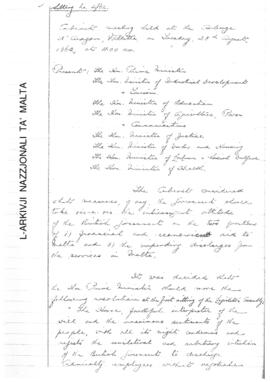 Cabinet meeting held at the Auberge
d'Aragon, Valletta on Tuesday, 28th August
1962, at 11.00 am
Present: The Hon. Prime Minister
The Hon. Minister of Industrial Development
& Tourism
The Hon. Minister of Education
The Hon. Minister of Agriculture, Power
& Communications
The Hon. Minister of Justice
The Hon. Minister of Works and Housing
The Hon. Minister of Labour & Social Welfare
The Hon. Minister of Health
The Cabinet considered
what measures, if any, the Government should
take vis-a-vis the attitude
of the British Government on the two problems
of 1) financial and economic aid to
Malta and 2) the impending discharges from
the services in Malta.
It was decided that
the Hon Prime Minister should move the
following resolution at the first sitting of the Legislative Assembly:
"The House, faithful interpreter of the
will and the unanimous sentiments of the
people, with all its might condemns and
rejects the unilateral and arbitrary intention
of the British Government to discharge
Admiralty employees without negotiations
L-ARKIVJI NAZZJONALI TA' MALTA